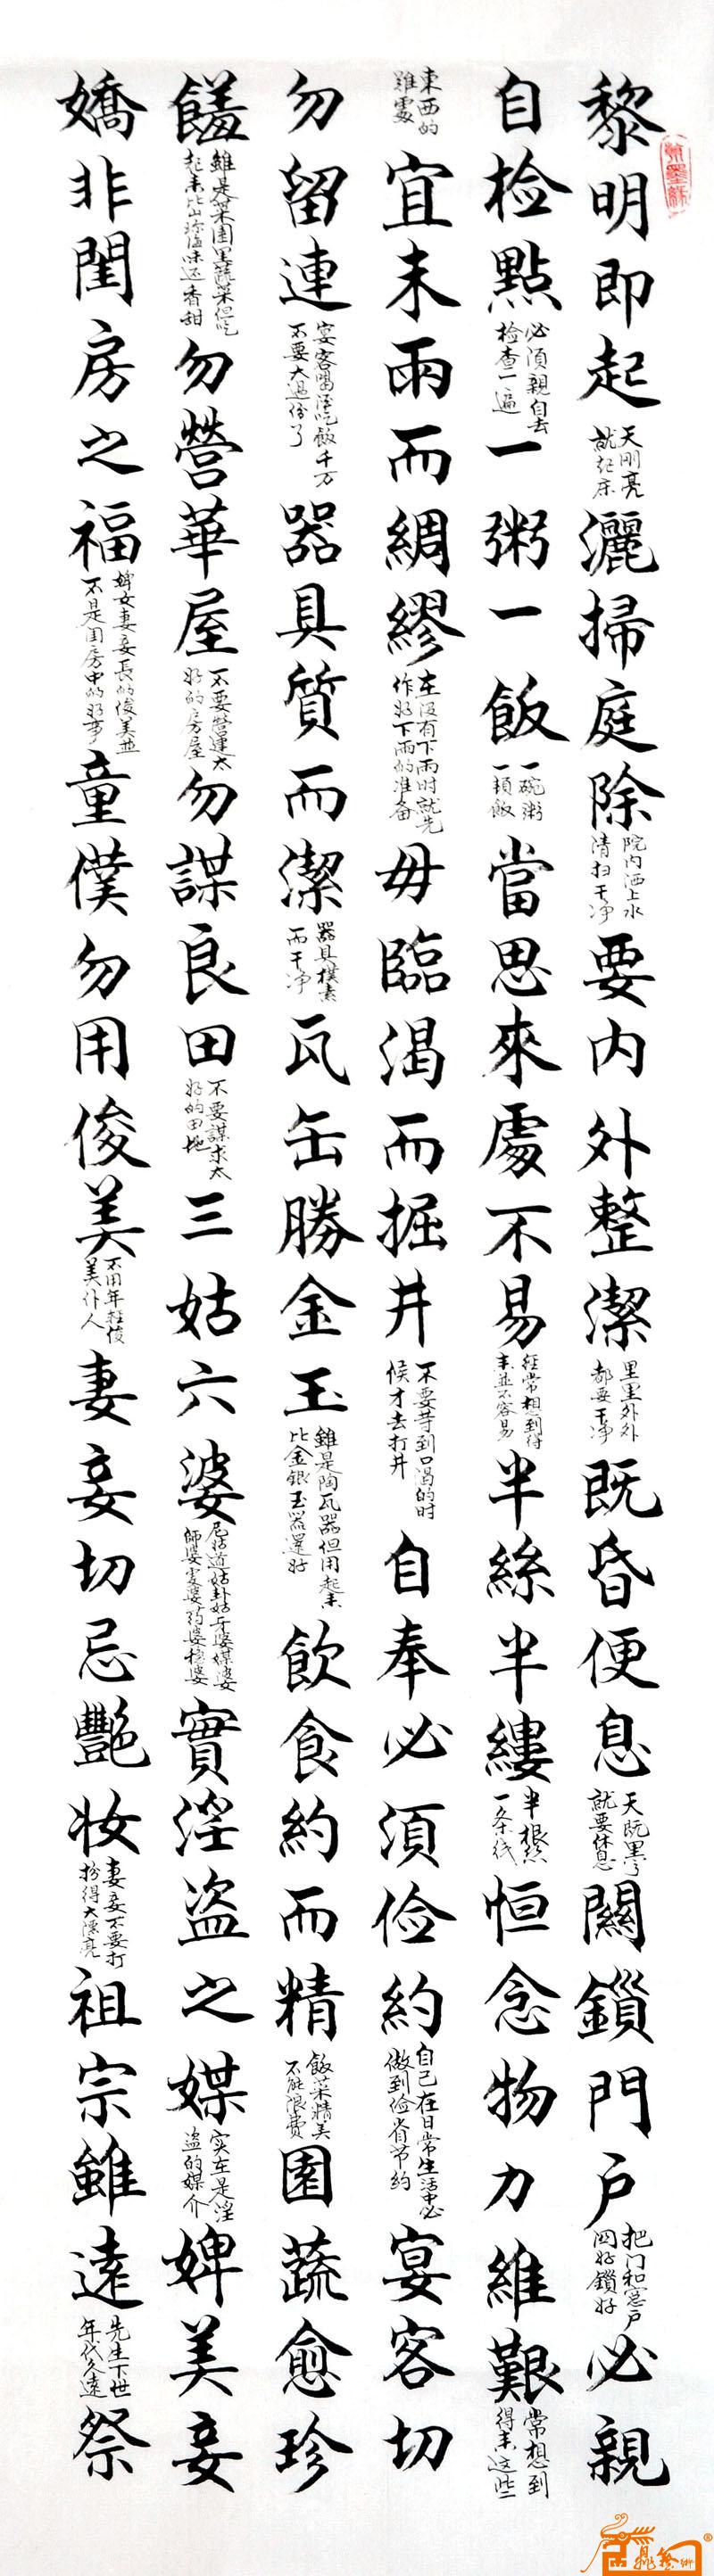 黎明即起天剛亮就起床灑掃庭除院内洒上水清扫干净要内外整潔里里外外都要干净既昏便息天既黑了就要休息關鎖門户把门和窓户関好鎖好必親
自检點必須親自去检查一遍一粥一飯一碗粥一頓飯當思來處不易经常想到得来並不容易半絲半縷半根丝一条线恒念物力維艱常想到得来这些
東西的難處宜未雨而綢繆在没有下雨时就先作好下雨的准备毋臨渴而掘井不要等到口渴的时候才去打井自奉必須俭約自己在日常生活中必做到俭省节约宴客切
勿留連宴客留 吃飯千万不要太過份了器具質而潔器具樸素而干净瓦缶勝金玉雖是陶瓦器但用起来比金銀玉器還好飲食約而精飯菜精美不能浪費園蔬愈珍
饈雖是菜園里蔬菜但吃起来比山珍海味还香甜勿營華屋不要營建太好的房屋勿謀良田不要謀求太好的田地三姑六婆尼姑道姑卦姑牙婆媒婆師婆虔婆药婆稳婆實淫盗之媒实在是淫盗的媒介婢美妾
嬌非閨房之福婢女妻妾長的俊美並不是闺房中的好事童僕勿用俊美不用年轻俊美仆人妻妾切忌艷妆妻妾不要打扮得太漂亮祖宗雖遠先生下世年代久遠祭